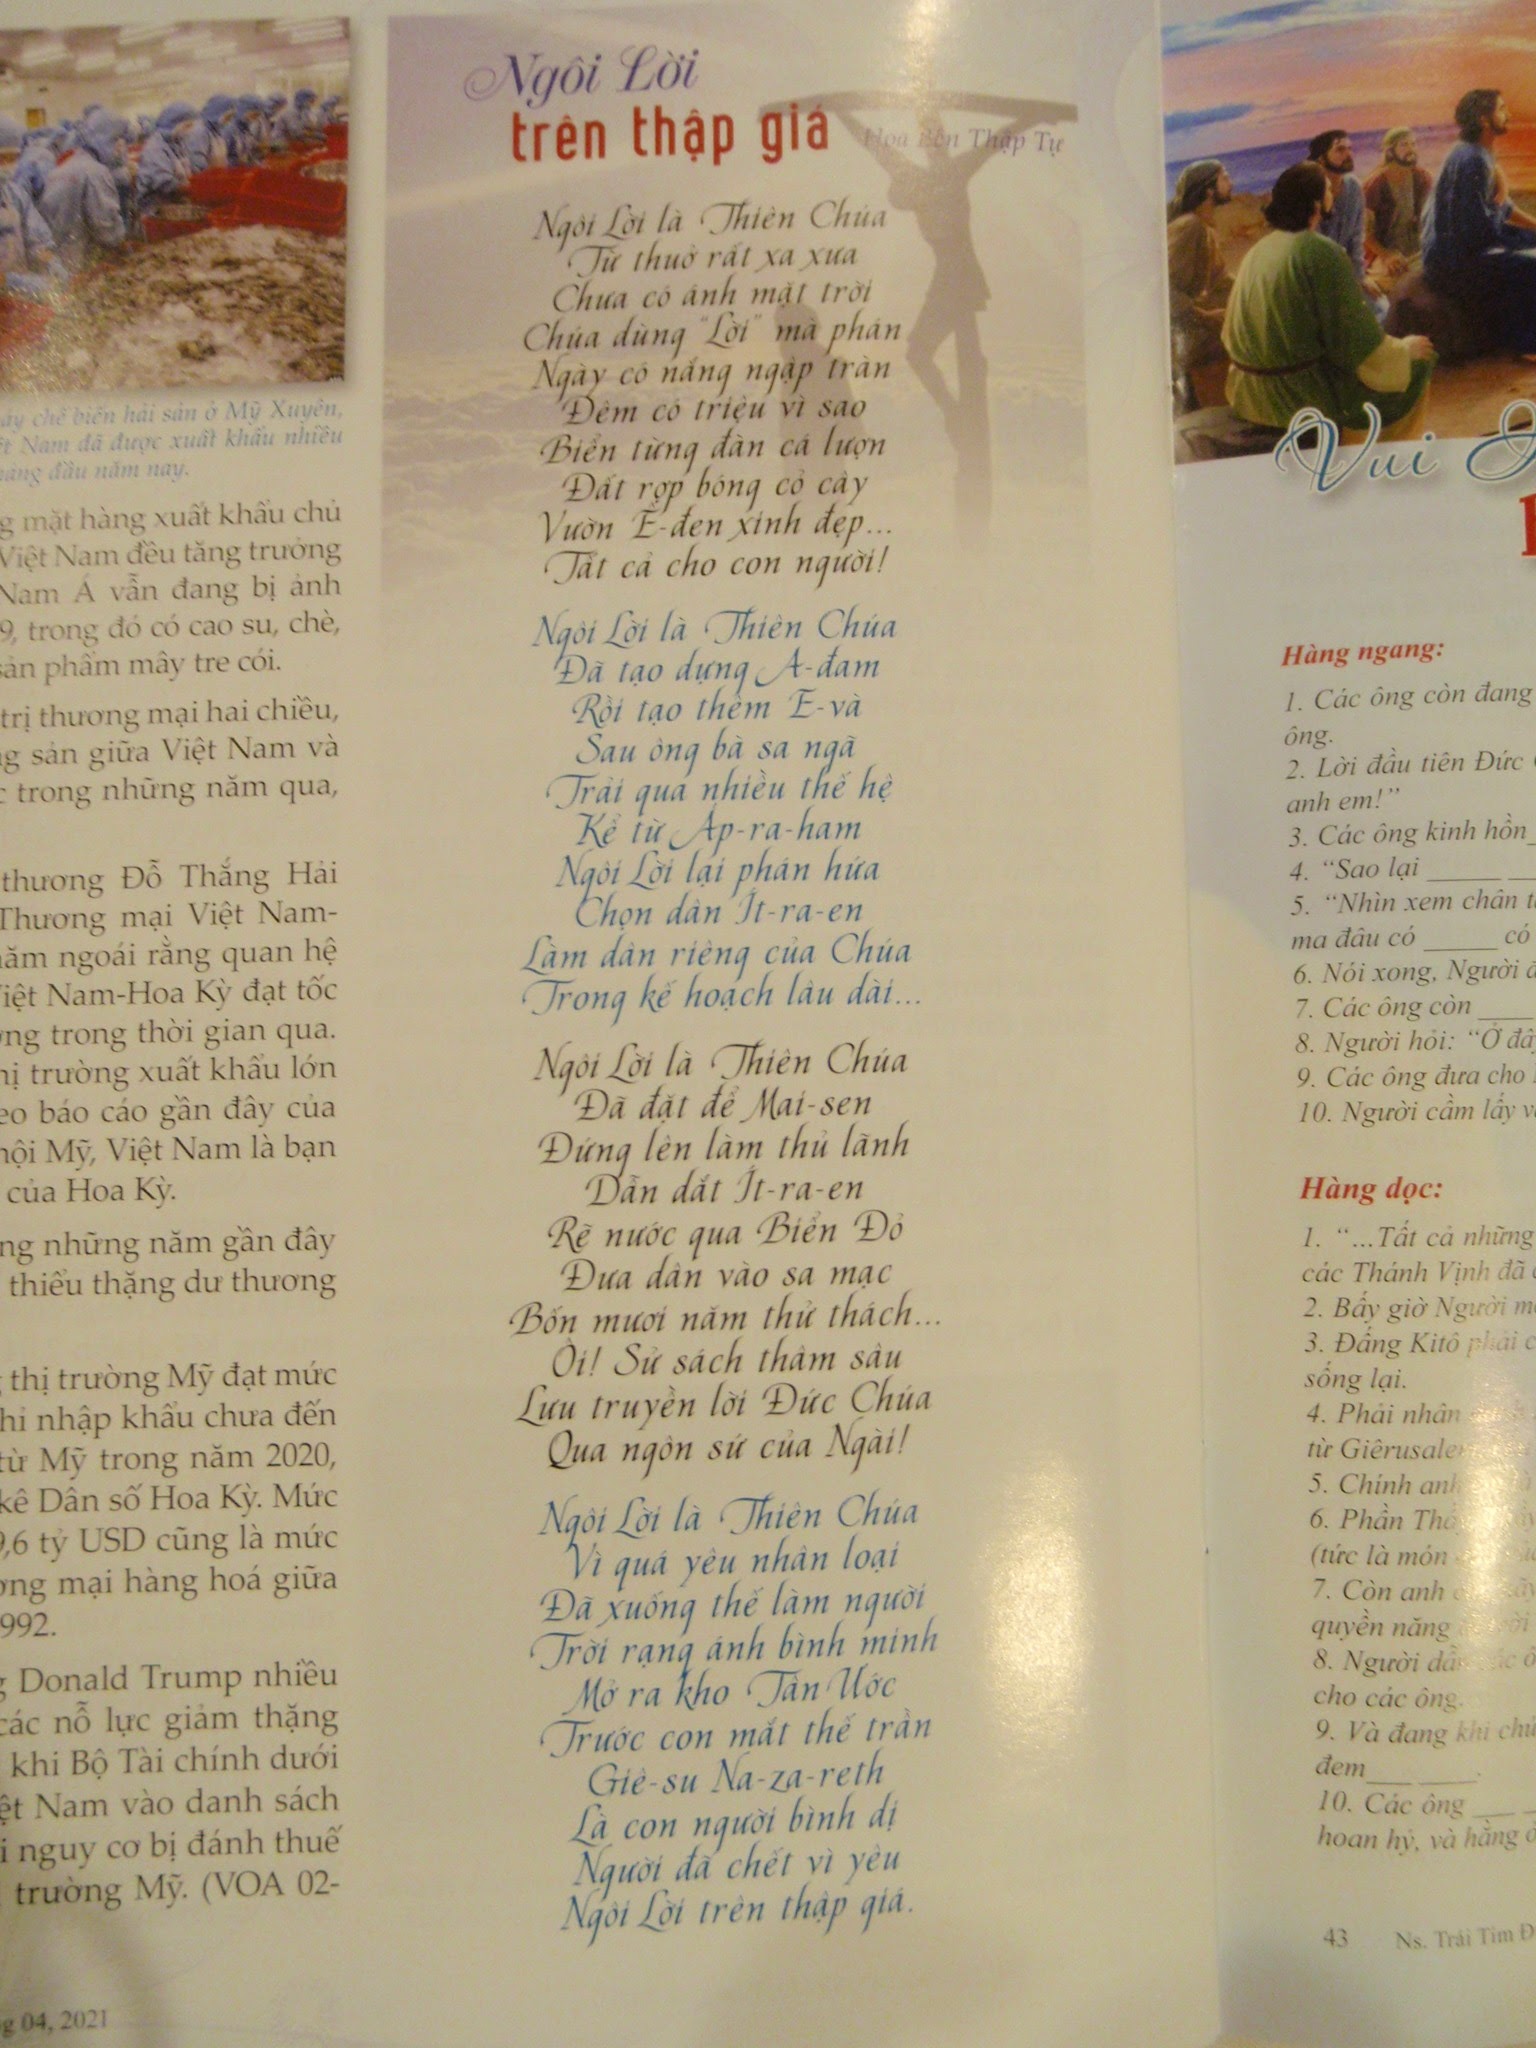 áy chế biến hải sản ở Mỹ Xuyên,
ệt Nam đã được xuất khẩu nhiều
háng đầu năm nay.
g mặt hàng xuất khẩu chủ
Việt Nam đều tăng trưởng
Nam Á vẫn đang bị ảnh
9, trong đó có cao su, chè,
sản phẩm mây tre cói.
trị thương mại hai chiều,
g sản giữa Việt Nam và
c trong những năm qua,
thương Đỗ Thắng Hải
Thương mại Việt Nam-
năm ngoái rằng quan hệ
Việt Nam-Hoa Kỳ đạt tốc
ợng trong thời gian qua.
hị trường xuất khẩu lớn
eo báo cáo gần đây của
hội Mỹ, Việt Nam là bạn
của Hoa Kỳ.
ng những năm gần đây
thiểu thặng dư thương
g thị trường Mỹ đạt mức
hỉ nhập khẩu chưa đến
từ Mỹ trong năm 2020,
kê Dân số Hoa Kỳ. Mức
9,6 tỷ USD cũng là mức
ơng mại hàng hoá giữa
992.
g Donald Trump nhiều
các nỗ lực giảm thặng
khi Bộ Tài chính dưới
ệt Nam vào danh sách
i nguy cơ bị đánh thuế
trường Mỹ. (VOA 02-
g 04, 2021
Ngôi Lời
trên thập giá
Thập Tự
Ngôi Lời là Thiên Chúa
Từ thuở rất xa xưa
Chưa có ánh mặt trời
Chúa dùng "Lời" mà phán
Ngày có nắng ngập tràn
Đêm có triệu vì sao
Biển từng đàn cá lượn
Đất rợp bóng cỏ cây
Vườn Ê-đen xinh đẹp...
Tất cả cho con người!
Ngôi Lời là Thiên Chúa
Đã tạo dựng A-đam
Rồi tạo thêm E-và
Sau ông bà sa ngã
Trải qua nhiều thế hệ
Kể từ Áp-ra-ham
Ngôi Lời lại phán hứa
Chọn dân Ít-ra-en
Làm dân riêng của Chúa
Trong kế hoạch lâu dài...
Ngôi Lời là Thiên Chúa
Đã đặt để Mai-sen
Đứng lên làm thủ lãnh
Dẫn dắt Ít-ra-en
Rẽ nước qua Biển Đỏ
Đưa dân vào sa mạc
Bốn mươi năm thử thách...
Ôi! Sử sách thâm sâu
Lưu truyền lời Đức Chúa
Qua ngôn sứ của Ngài!
Ngôi Lời là Thiên Chúa
Vì quá yêu nhân loại
Đã xuống thế làm người
Trời rạng ánh bình minh
Mở ra kho Tân Ước
Trước con mắt thế trần
Giê-su Na-za-reth
Là con người bình dị
Người đã chết vì yêu
Ngôi Lời trên thập giá.
Vui
Hàng ngang:
1. Các ông còn đang
ông.
2. Lời đầu tiên Đức
anh em!"
3. Các ông kinh hồn_
4. "Sao lại _____ __
5. "Nhìn xem chân t
ma đâu có _____ có
6. Nói xong, Người đ
7. Các ông còn ____
8. Người hỏi: "Ở đây
9. Các ông đưa cho
10. Người cầm lấy v
Hàng dọc:
1. "...Tất cả những
các Thánh Vịnh đã
2. Bấy giờ Người m
3. Đấng Kitô phải c
sống lại.
4. Phải nhân
từ Giêrusale
5. Chính anh
6. Phần Th
(tức là món
7. Còn anh
quyền năng
8. Người dẫ
cho các ông.
9. Và đang khi chú
đem___ ____.
10. Các ông ___
hoan hỷ, và hằng ở
43 Ns. Trái Tim Đ